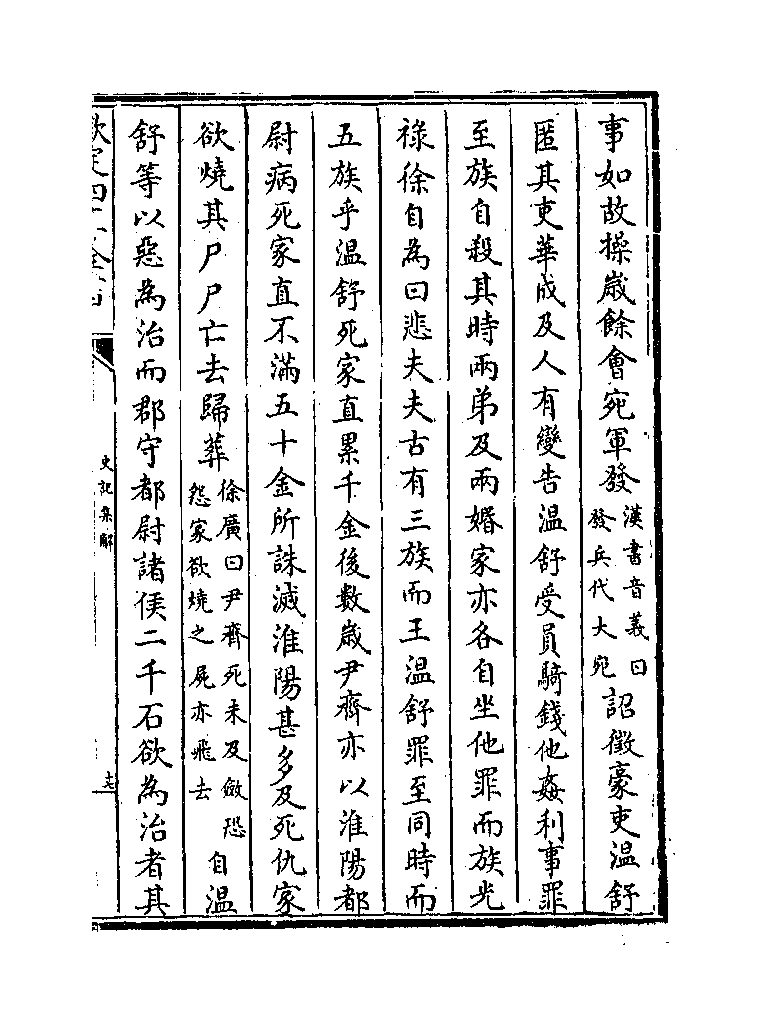 事如故操歳餘會宛軍發漢書音義曰發兵代大宛詔徴豪吏温舒
匿其吏華成及人有變告温舒受員騎錢他姦利事罪
至族自殺其時兩弟及兩婚家亦各自坐他罪而族光
禄徐自為曰悲夫夫古有三族而王温舒罪至同時而
五族乎温舒死家直累千金後數歳尹齊亦以淮陽都
尉病死家直不滿五十金所誅滅淮陽甚多及死仇家
欲燒其尸尸亡去歸葬徐廣曰尹齊死未及斂恐怨家欲燒之屍亦飛去自温
舒等以惡為治而郡守都尉諸侯二千石欲為治者其
史記集解